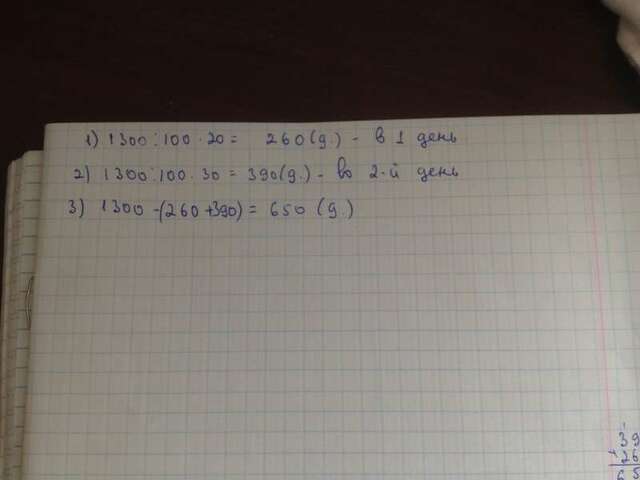 1) 1300:100·20= 260(д.) - в 1 день
2) 1300:100·30=390(д.) - во 2-й день
3) 1300-(260+390)=650 (д.)
39
+26
65